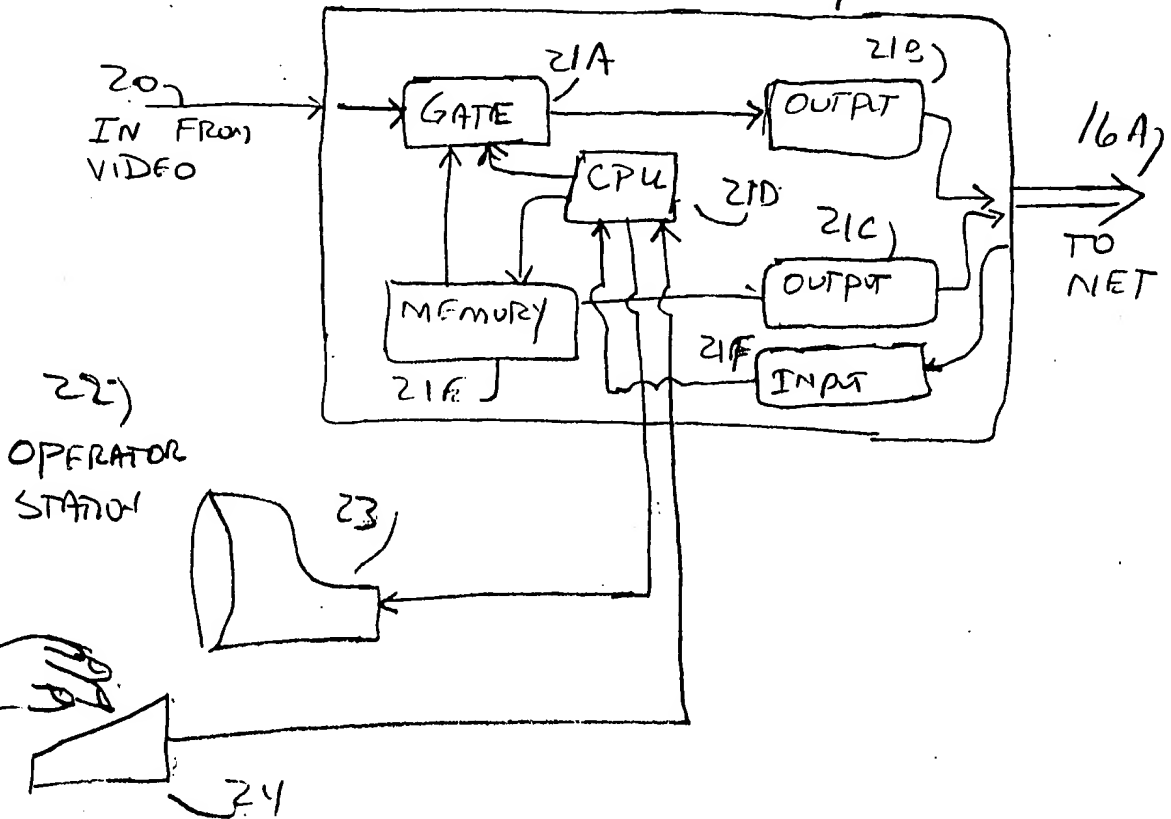 20
IN FROM
VIDEO
21A
GATE
21B
OUTPUT
16A
TO
NET
CPU
21D
21C
OUTPUT
MEMORY
21E
21F
INPUT
22
OPERATOR
STATION
23
24